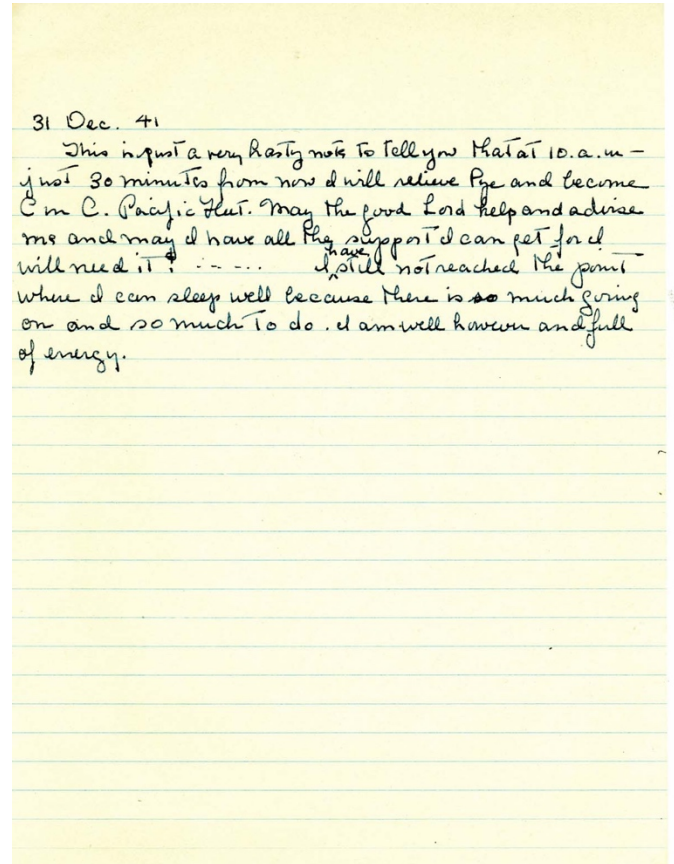 31 Dec. 41
This is just a very hasty note to tell you that at 10.a.m –
just 30 minutes from now I will relieve Pye and become
C in C. Pacific Fleet. May the good Lord help and advise
me and may I have all the support I can get for I
will need it! ----- I have still not reached the point
where I can sleep well because there is so much going
on and so much to do. I am well however and full
of energy.